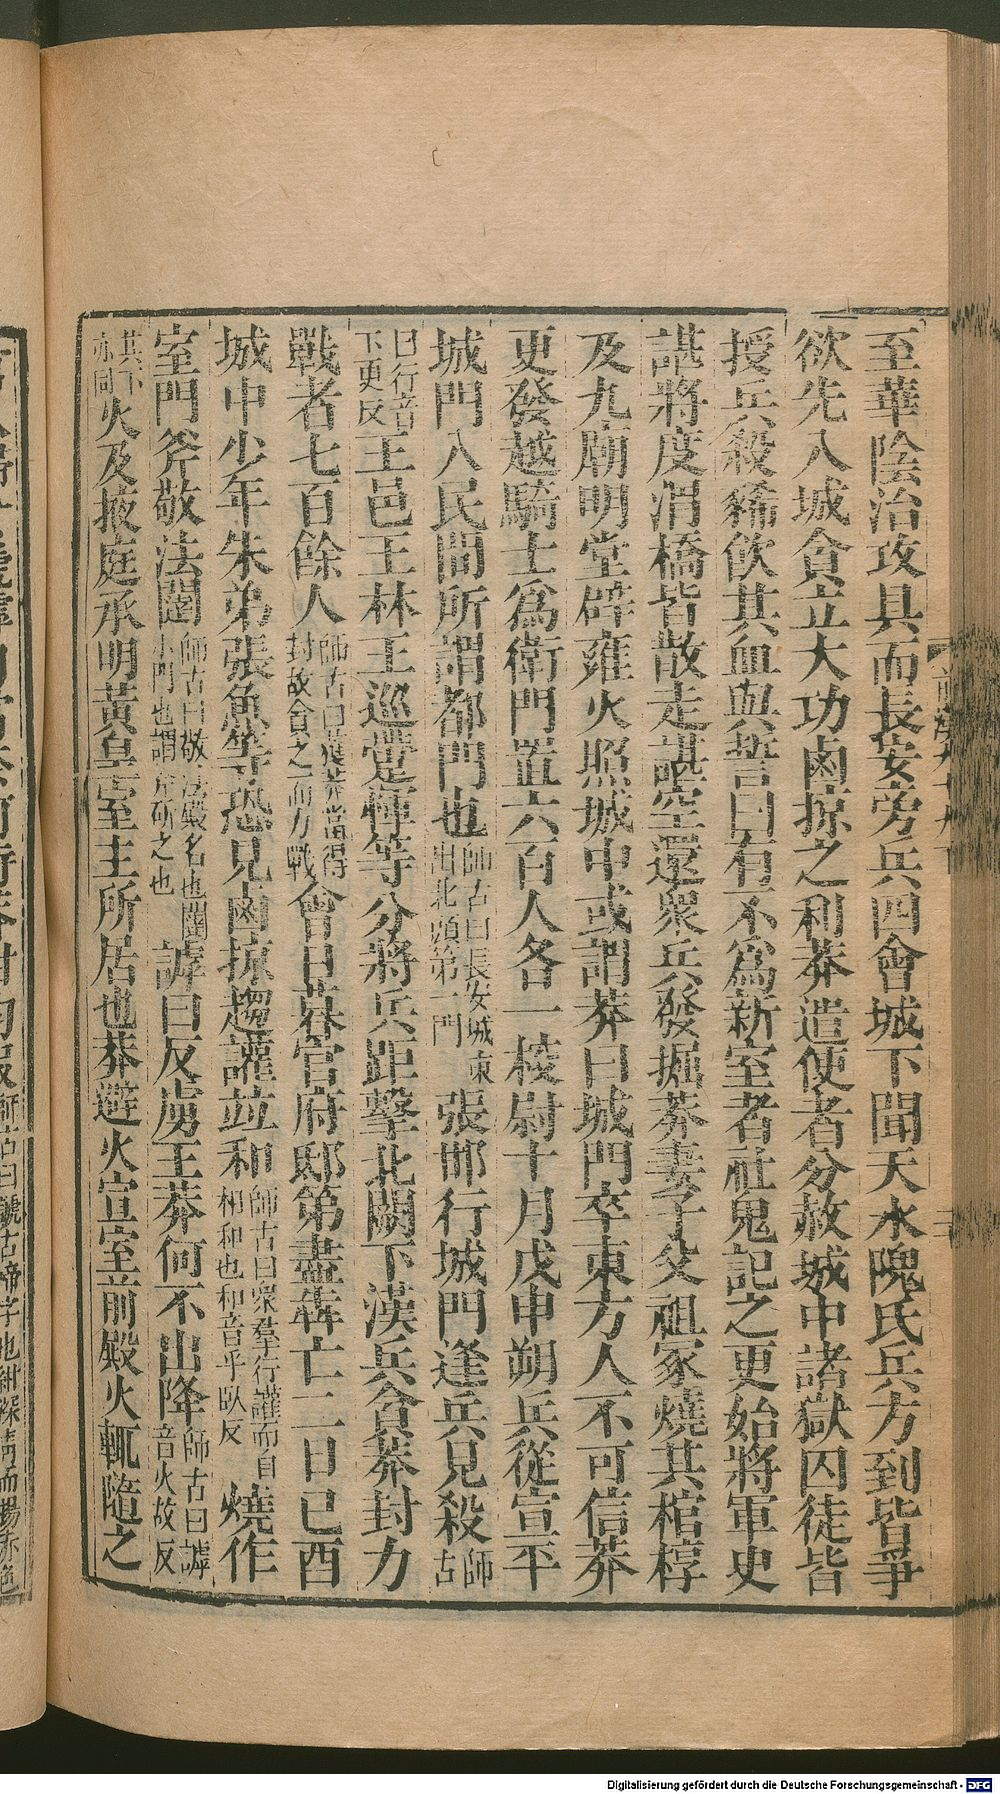 至華陰治攻具而長安旁兵四會城下聞天水隗氏兵方到皆爭
欲先入城貪立大功鹵掠之利莽遣使者分赦城中諸獄囚徒皆
授兵殺豨飲其血與誓曰有不爲新室者社鬼記之更始將軍史
諶將度渭橋皆散走諶空還衆兵發掘莽妻子父祖冢燒其棺椁
及九廟明堂辟雍火照城中或謂莽曰城門卒東方人不可信莽
更發越騎士爲衛門置六百人各一校尉十月戊申朔兵從宣平
城門入民間所謂都門也師古曰長安城東出北頭第一門張邯行城門逢兵見殺師古
曰行音下更反王邑王林王巡𨅖惲等分將兵距擊北闕下漢兵貪莽封力
戰者七百餘人師古曰獲莽當得封故貪之而力戰會日暮官府邸第盡犇亡二日己酉
城中少年朱弟張魚等恐見鹵掠趨讙並和師古曰衆羣行讙而自相和也和音乎臥反燒作
室門斧敬法闥師古曰敬法殿名也闥小門也謂斧斫之也謼曰反虜王莽何不出降師古曰謼音火故反
其下亦同火及掖庭承明黃皇室主所居也莽避火宣室前殿火輒隨之
Digitalisierung gefördert durch die Deutsche Forschungsgemeinschaft - DFG